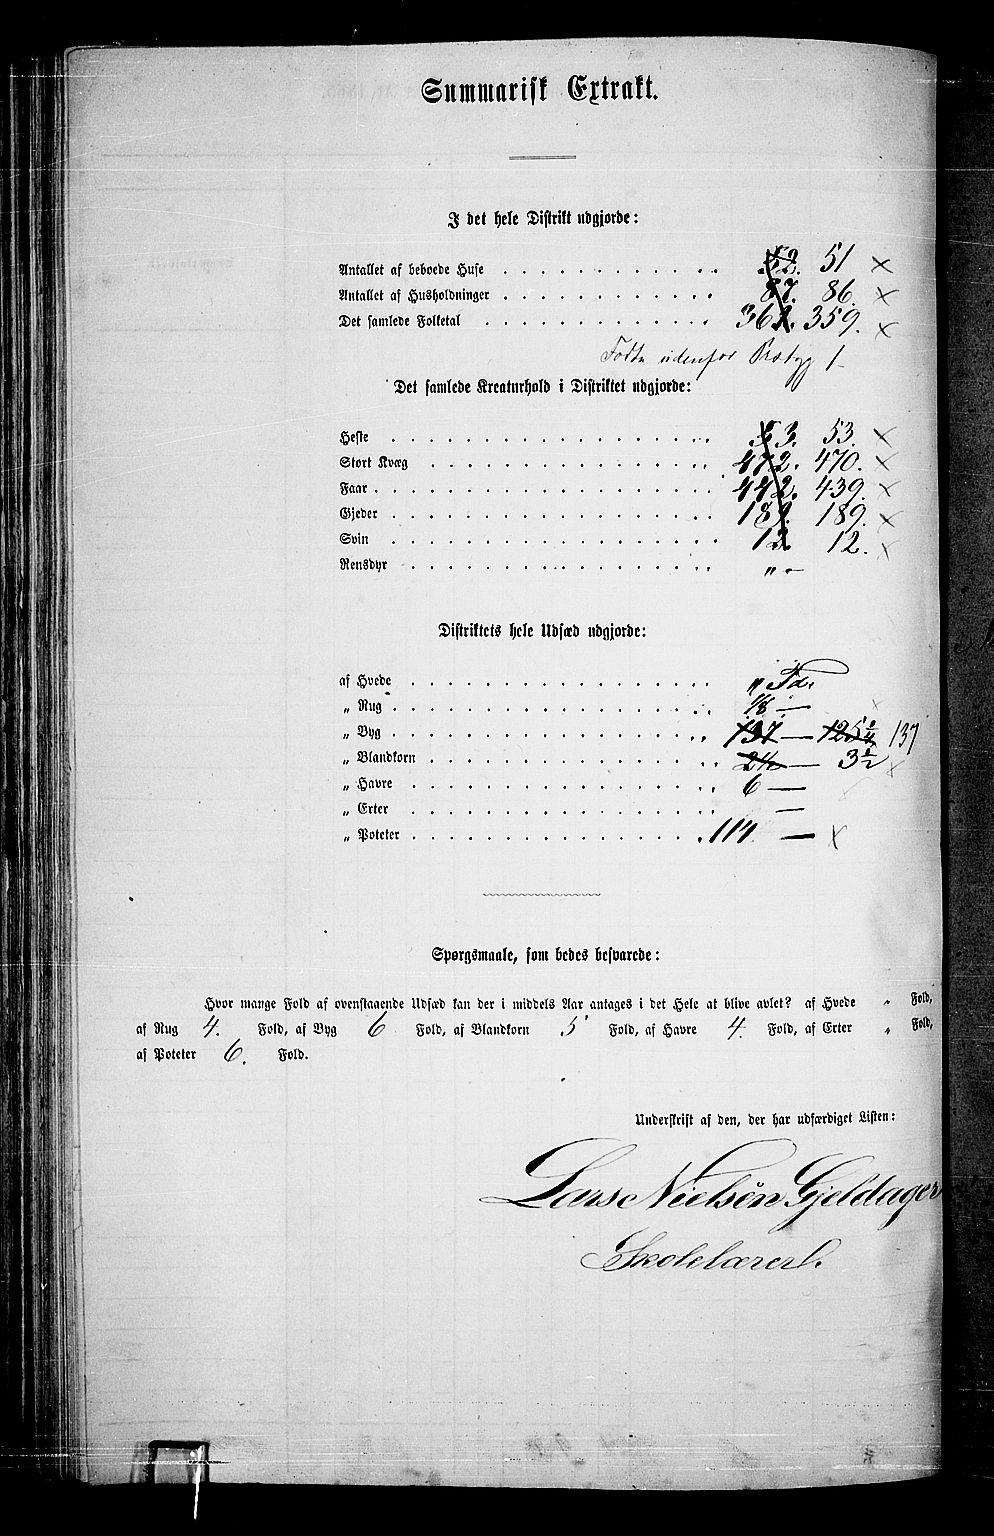 Summarisk Extrakt.
I det hele Distrikt udgjorde:
Antallet af beboede Huse . . . . . . . . . 52. 51 ×
Antallet af Husholdninger . . . . . . . . . 87. 86. ×
Det samlede Folketal . . . . . . . . . 362. 359. ×
Fødte udenfor Præstgj 1
Det samlede Kreaturhold i Distriktet udgjorde:
Heste . . . . . . . . . 53. 53. ×
Stort Kvæg . . . . . . . . . 472. 470. ×
Faar . . . . . . . . . 442. 439. ×
Gjeder . . . . . . . . . 189. 189. ×
Svin . . . . . . . . . 12 12. ×
Rensdyr . . . . . . . . . „ –
Distriktets hele Udsæd udgjorde:
af Hvede . . . . . . . . . „ Td.
„ Rug . . . . . . . . . 1/8 —
„ Byg . . . . . . . . . 137 — 125 3/4 137
„ Blandkorn . . . . . . . . . 2 1/2 — 3 1/2 ×
„ Havre . . . . . . . . . 6 —
„ Erter . . . . . . . . . —
„ Poteter . . . . . . . . . 114 — ×
Spørgsmaale, som bedes besvarede:
Hvor mange Fold af ovenstaaende Udsæd kan der i middels Aar antages i det Hele at blive avlet? af Hvede „ Fold,
af Rug 4. Fold, af Byg 6 Fold, af Blandkorn 5 Fold, af Havre 4. Fold, af Erter „ Fold,
af Poteter 6. Fold.
Underskrift af den, der har udfærdiget Listen:
Lars Nielsen Gjeldager
Skolelærer.